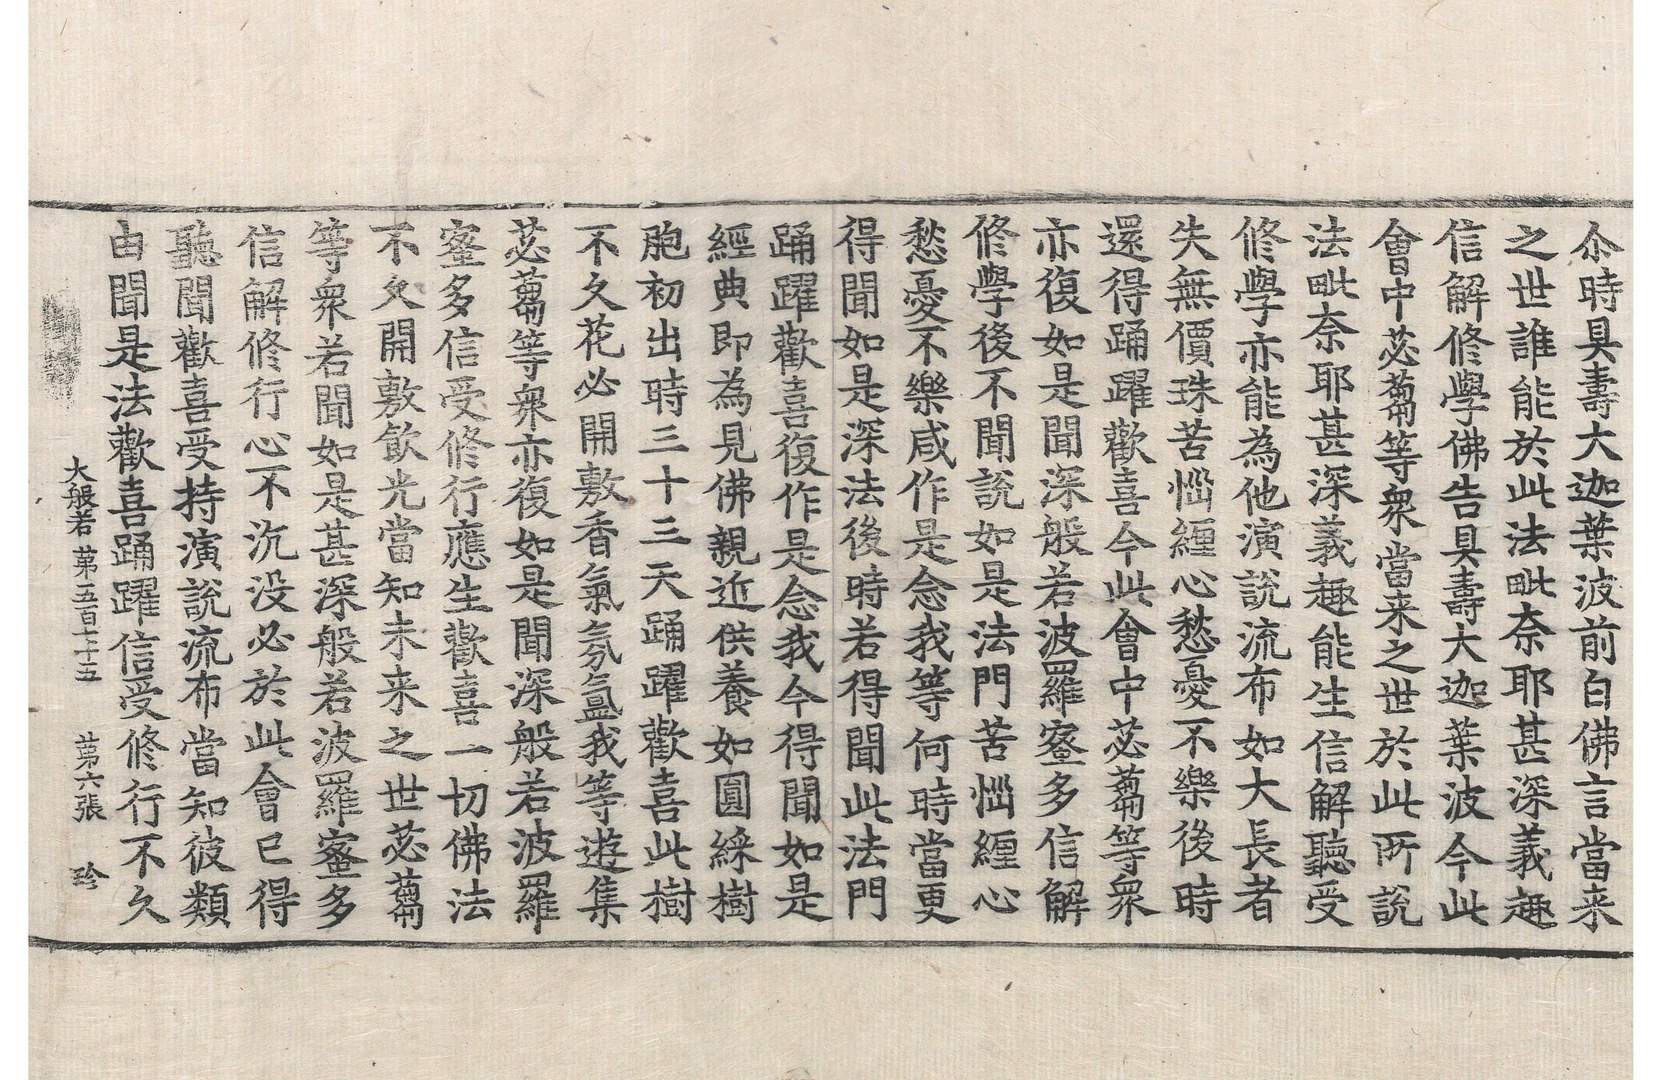 尒時具壽大迦葉波前白佛言當来
之世誰能於此法毗奈耶甚深義趣
信解修學佛告具壽大迦葉波今此
會中苾蒭等衆當来之世於此所說
法毗奈耶甚深義趣能生信解聽受
修學亦能為他演說流布如大長者
失無價珠苦惱纏心愁憂不樂後時
還得踊躍歡喜今此會中苾蒭等衆
亦復如是聞深般若波羅蜜多信解
修學後不聞說如是法門苦惱纏心
愁憂不樂咸作是念我等何時當更
得聞如是深法後時若得聞此法門
踊躍歡喜復作是念我今得聞如是
經典即為見佛親近供養如圓綵樹
胞初出時三十三天踊躍歡喜此樹
不久花必開敷香氣氛氲我等遊集
苾蒭等衆亦復如是聞深般若波羅
蜜多信受修行應生歡喜一切佛法
不久開敷飲光當知未来之世苾蒭
等衆若聞如是甚深般若波羅蜜多
信解修行心不沉没必於此會已得
聽聞歡喜受持演說流布當知彼類
由聞是法歡喜踊躍信受修行不久
大般若 第五百七十五 第六張 珍